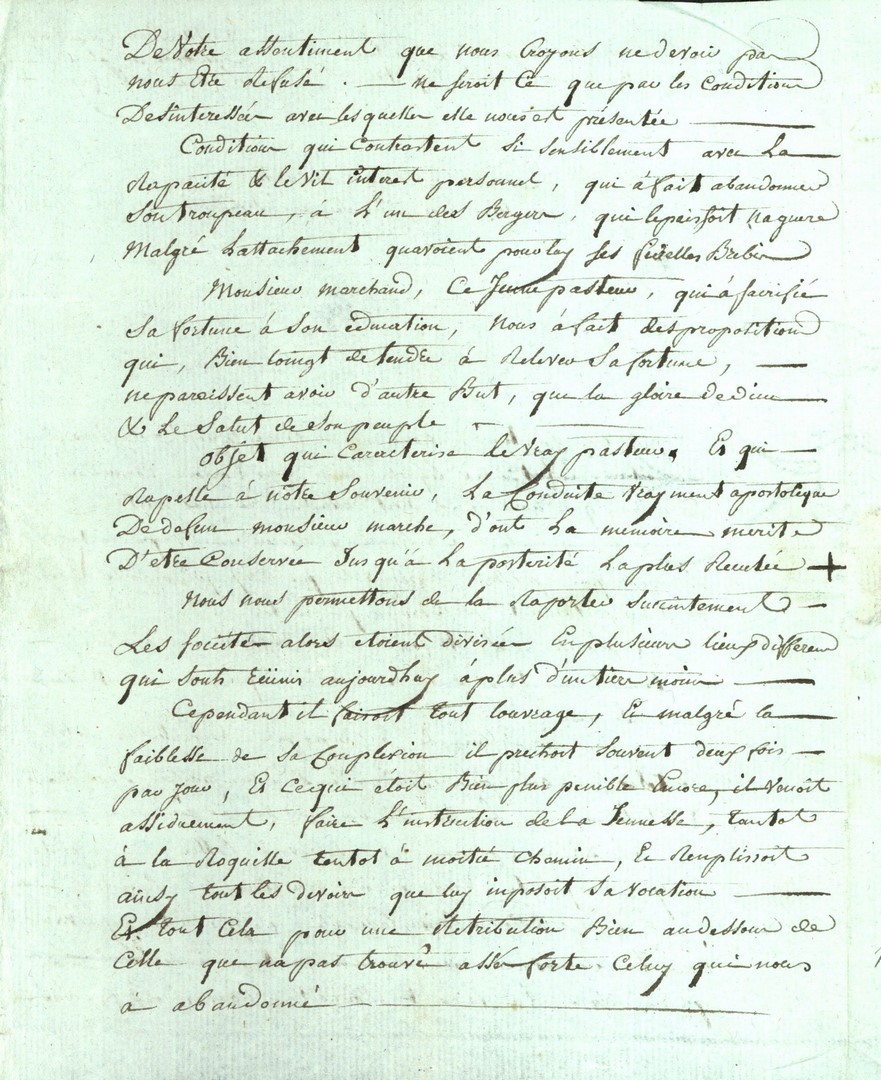 De Votre assentiment que nous Croyons ne devoir pas
nous Etre Refusé. — ne seroit Ce que par les Conditions
Desinteressées avec lesquelles elle nous est présentée —
Conditions qui Contrastent si sensiblement avec La
Rapacité & le vil interest personnel, qui à fait abandonner
son troupeau, à L'un des Bergers, qui le paissoit naguere
Malgré Lattachement quavoient pour luy ses fidelles Brebis
Monsieur marchand, Ce Jeune pasteur, qui à sacrifié
sa fortune à son éducation, nous à fait des propositions
qui, Bien loingt de tendre à Relever sa fortune, —
ne paroissent avoir d'autre But, que la gloire de dieu —
& Le Salut de son peuple —
objet qui Caracterise le vray pasteur. Et qui —
Rapelle à notre souvenir, La Conduite vrayment apostolique
De defun monsieur marche, d'ont La memoire merite
D'etre Conservée Jusqu'à La posterité La plus Reculée +
Nous nous permettons de la Raporter succintement —
Les societés alors etoient divisées En plusieurs lieux differens
qui sonts réünis aujourdhuy à plus d'un tiers moins —
Cependant il faisoit tout louvrage, Et malgré la —
faiblesse de sa Complexion il prechoit souvent deux fois —
par Jour, Et Ce qui etoit Bien plus penible Encore, il venoit
assiduement, faire L'instruction de La Jeunesse, tantot
à la Roquille tentot à moitié Chemin, Et Remplissoit
ainsy tout les devoirs que luy inposoit sa vocation —
Et tout Cela pour une Retribution Bien au dessous de
Celle que na pas trouvé assé forte Celuy qui nous
à abandonné —